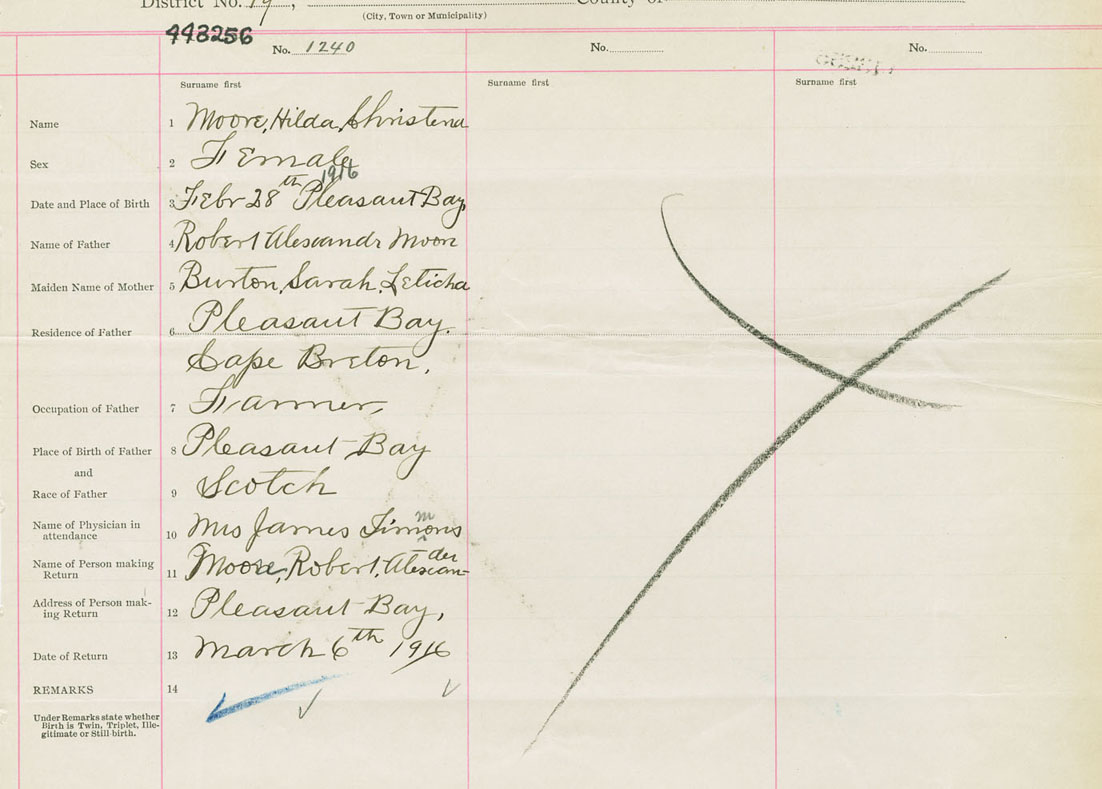 District No. 19, County of
(City, Town or Municipality)
443256
No. 1240 No. No.
Surname first Surname first Surname first
Name 1 Moore, Hilda, Christena
Sex 2 Female
1916
Date and Place of Birth 3 Febr 28th Pleasant Bay,
Name of Father 4 Robert Alexandr Moore
Maiden Name of Mother 5 Burton, Sarah, Leticha
Residence of Father 6 Pleasant Bay.
Cape Breton.
Occupation of Father 7 Farmer,
Place of Birth of Father 8 Pleasant Bay
and
Race of Father 9 Scotch
Name of Physician in
attendance 10 Mrs James Timmons
Name of Person making
Return 11 Moore, Robert, Alexander
Address of Person mak-
ing Return 12 Pleasant Bay,
Date of Return 13 March 6th 1916
REMARKS 14
Under Remarks state whether
Birth is Twin, Triplet, Ille-
gitimate or Still birth.